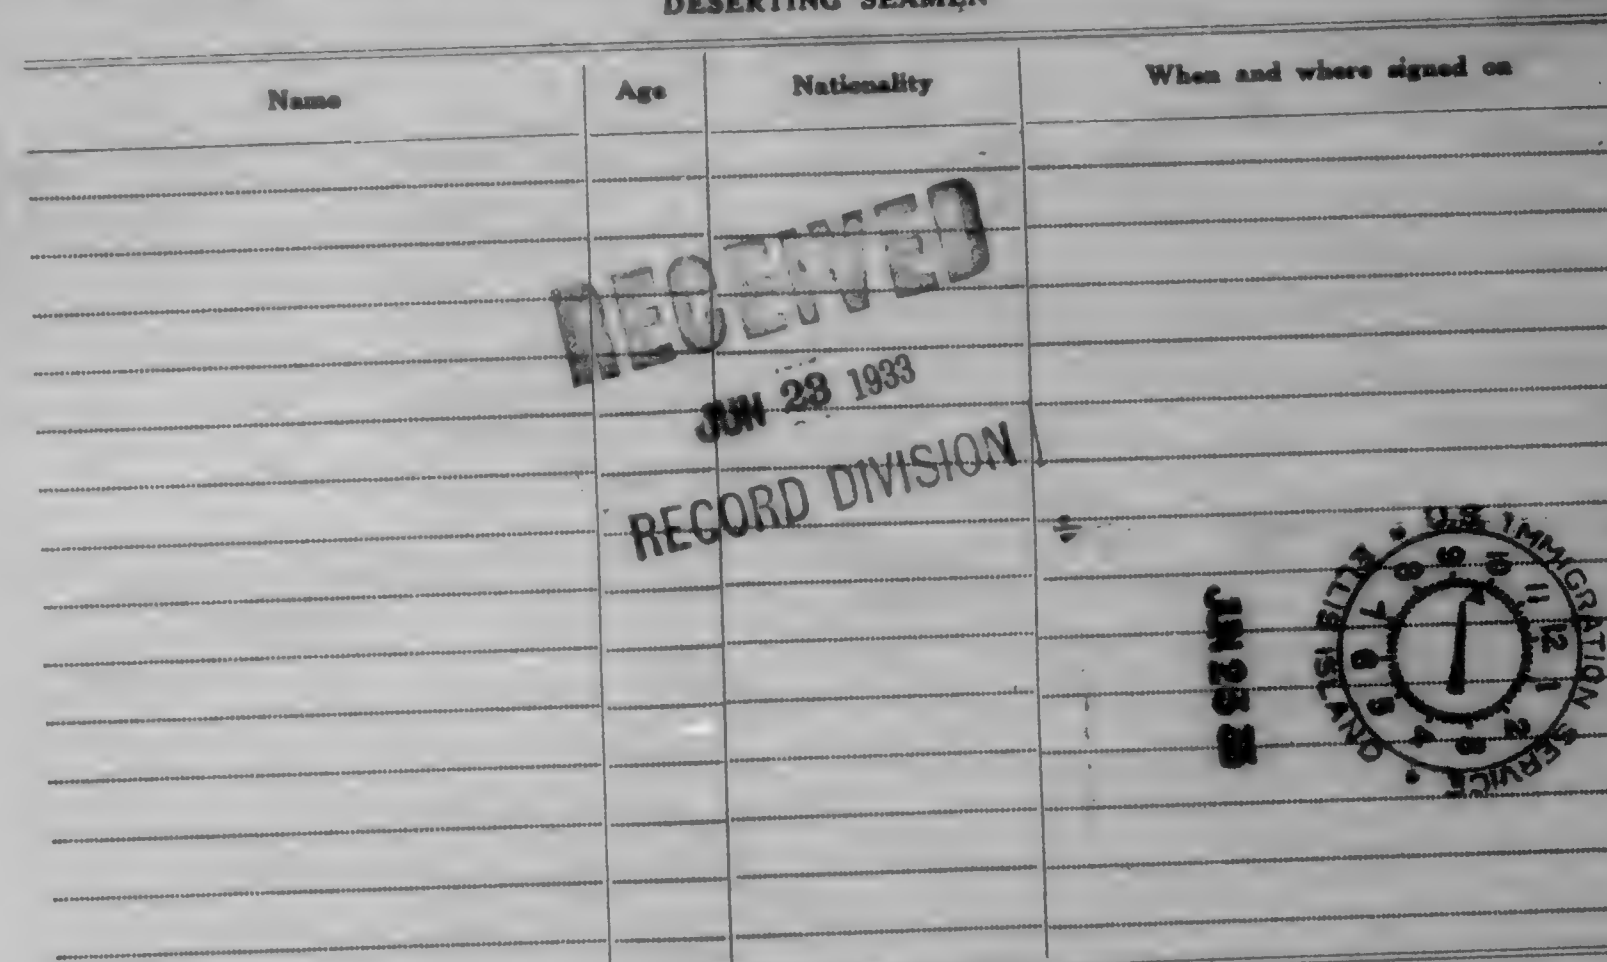 DESERTING SEAMEN
Name Age Nationality When and where signed on
RECEIVED
JUN 23 1933
RECORD DIVISION
U.S. IMMIGRATION SERVICE • ELLIS ISLAND •
9 10 11 12 1 2 3 4 5 6 7 8
JUN 23